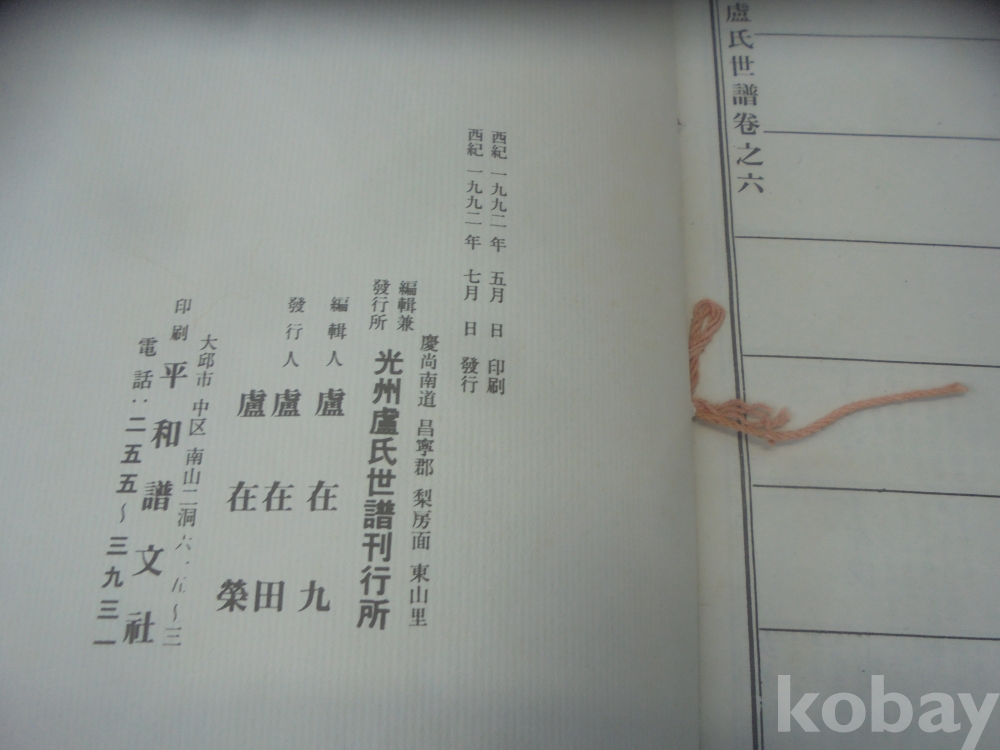 盧氏世譜卷之六
西紀 一九九二年 五月 日 印刷
西紀 一九九二年 七月 日 發行
慶尚南道 昌寧郡 梨房面 東山里
編輯兼
發行所 光州盧氏世譜刊行所
編輯人 盧在九
發行人 盧在田
盧在榮
大邱市 中区 南山二洞 六 五～三
印刷 平和譜文社
電話：二五五～三九三一
kobay